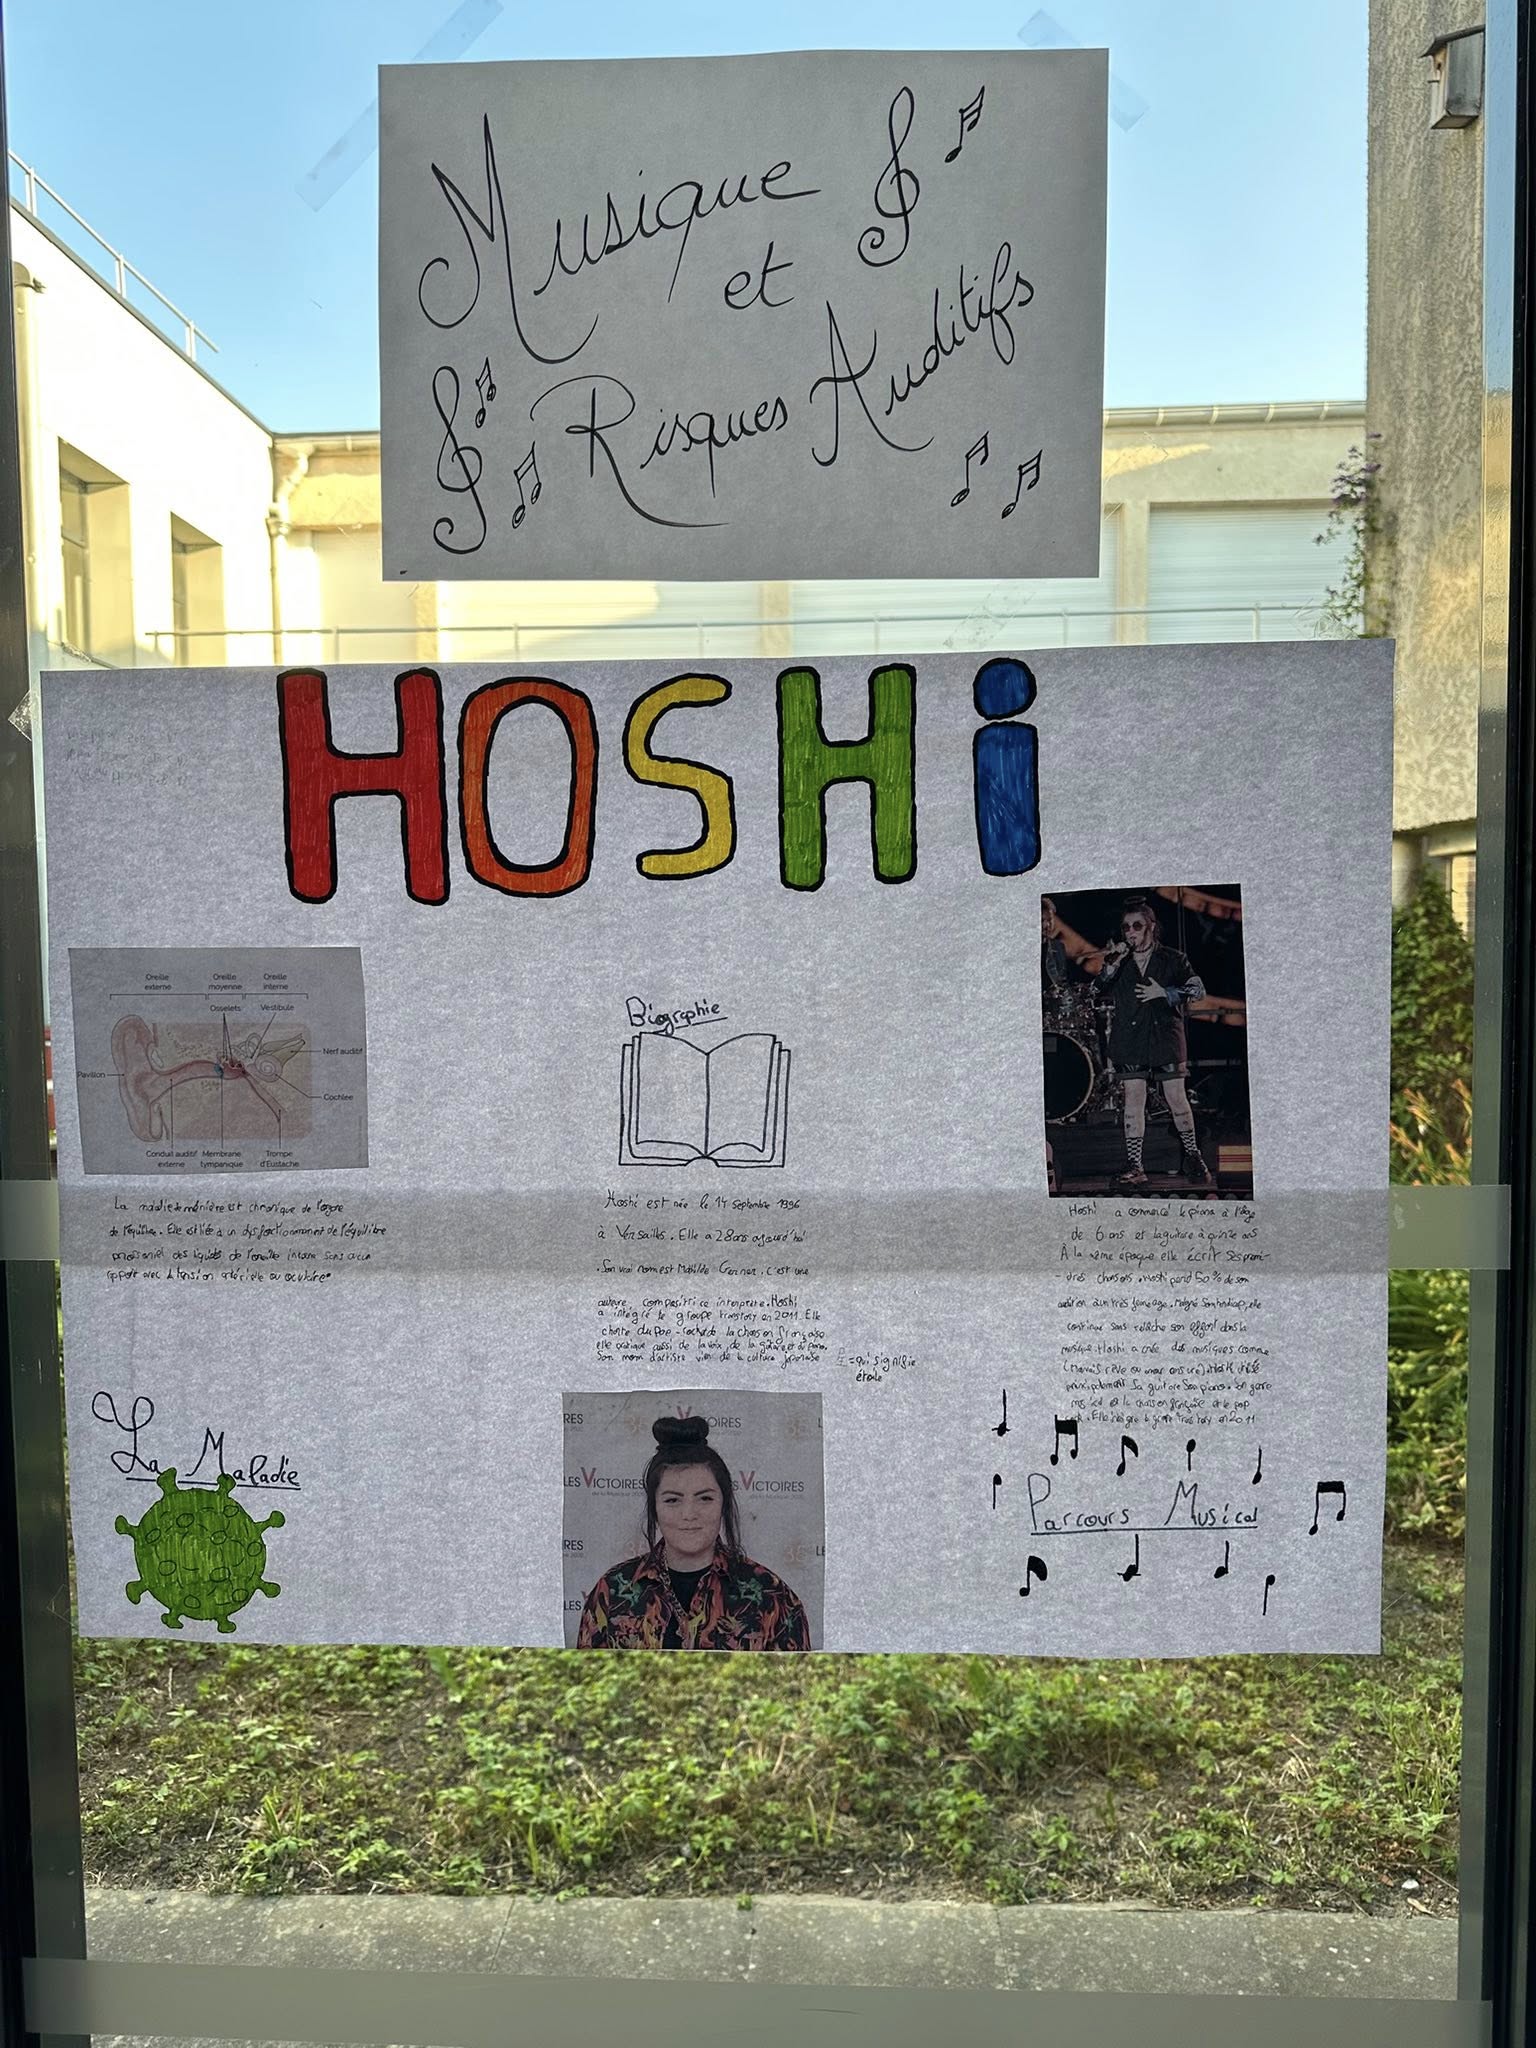 Musique
et
Risques Auditifs
HOSHi
Oreille externe
Oreille moyenne
Oreille interne
Osselets
Vestibule
Nerf auditif
Pavillon
Cochlée
Conduit auditif externe
Membrane tympanique
Trompe d'Eustache
La maladie de ménière est chronique de l'organe
de l'équilibre. Elle est liée à un dysfonctionnement de l'équilibre
des liquides de l'oreille interne sans aucun
rapport avec la tension artérielle ou oculaire.
La Maladie
Biographie
Hoshi est née le 14 septembre 1996
à Versailles. Elle a 28 ans aujourd'hui
. Son vrai nom est Mathilde Gerner. c'est une
auteure compositrice interprète. Hoshi
a intégré le groupe transtory en 2011. Elle
chante du Pop-rock de la chanson française
elle pratique aussi de la voix, de la guitare et du piano.
Son nom d'artiste vient de la culture japonaise
星 = qui signifie
étoile
RES
VICTOIRES
LES VICTOIRES
de la Musique
ES VICTOIRES
RES
35
LES
Hoshi a commencé le piano à l'âge
de 6 ans et la guitare à quinze ans
À la même époque elle écrit ses premi-
-ères chansons. Hoshi perd 50% de son
audition à un très jeune age. Malgré son handicap, elle
continue sans relâche son effort dans la
musique. Hoshi a crée des musiques comme
(Mauvais rêve ou amour censure). Hoshi utilise
principalement sa guitare son piano. son genre
musical est la chanson française et le pop
rock. Elle intègre le groupe transtory en 2011
Parcours Musical